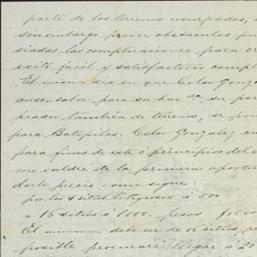 parte de los terrenos usurpados;
sin embargo prever obstáculos
siadas las complicaciones para
éxito fácil y satisfactorio
El mismo dia en que Celso Gonzal
ausentaba para su hacda, su
prador tambien de terreno, se
para Batopilas. Celso Gonzalez
para fines de este ó principios del
me valdré de la primera
darle precios como sigue:
por los 4 sitios litigiosos á 500
" 16 sitios á 1000. pesos
El mínimum debe ser de 16 sitios
posible procuraré llegar á 20